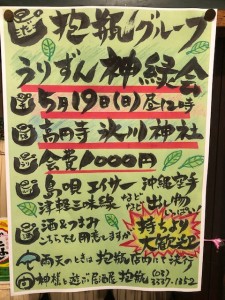 抱瓶グループ
うりずん神縁会
5月19日(日)昼12時
高円寺 氷川神社
会費1000円
島唄 エイサー 沖縄空手
津軽三味線 などなど 出し物
酒&つまみ
こちらでも用意しますが
持ちより
大歓迎
雨天のときは抱瓶店内にて決行
神様と遊ぶ居酒屋 抱瓶